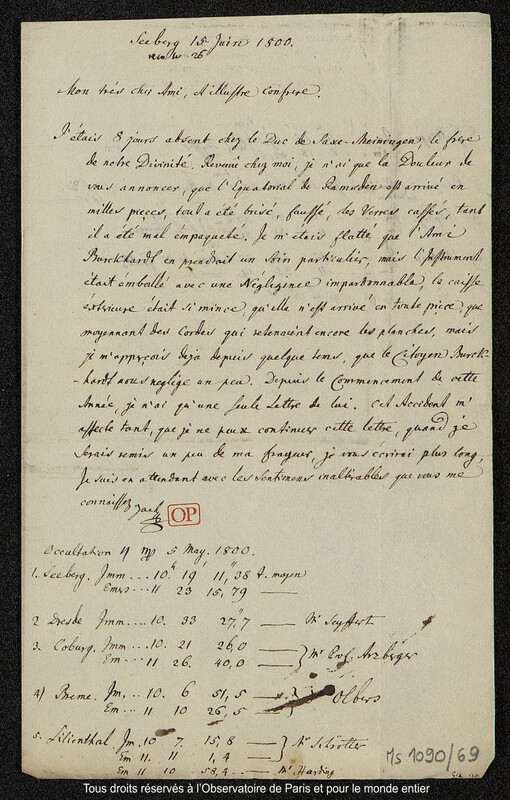 Seeberg 15 Juin 1800.
26
Mon trés cher Ami, et illustre Confrere.
J'étais 8 jours absent chez le Duc de Saxe-Meiningen, le frere
de notre Divinité. Revenu chez moi, je n'ai que la Douleur de
vous annoncer, que l'Equatorial de Ramsden est arrivé en
milles pieces, tout a été brisé, faussé, les Verres cassés, tant
il a été mal empaqueté. Je m'etois flatté que l'Ami
Burckhardt en prendroit un Soin particulier, mais l'Instrument
était emballé avec une Négligence impardonnable, la caisse
éxtérieure était si mince, qu'elle n'est arrivé en toute piece, que
moyennant des Cordes qui retenoient encore les planches, mais
je m'apperçois deja depuis quelque tems, que le Citoyen Burck-
-hardt nous neglige un peu. Depuis le Commencement de cette
Année, je n'ai qu'une seule Lettre de lui. Cet Accident m'
affecte tant, que je ne peux continuer cette lettre, quand je
serais remis un peu de ma frayeur, je vous écrirai plus long,
Je suis en attendant avec les Sentimens inaltérables que vous me
connaissez Zach
OP
Occultation ♃ ♍ 5 May. 1800.
1. Seeberg. Imm... 10h 19' 11,"38 t. moyen
Emers... 11 23 15,79 —
2 Dresde Imm.... 10. 33 27,"7 — Mr Seyffert
3. Coburg. Imm... 10. 21 26,0
Em... 11 26. 40,0 — } Mr Prof. Arzberger
4) Breme. Im... 10. 6 51,5
Em... 11 10 26,5 — } Olbers
5. Lilienthal Im. 10 7. 15,8 —
Em 11. 11 1,4 — } Mr Schrötter
Em 11 10 58,4 — Mr Harding
Ms 1090/69
Tous droits réservés à l'Observatoire de Paris et pour le monde entier